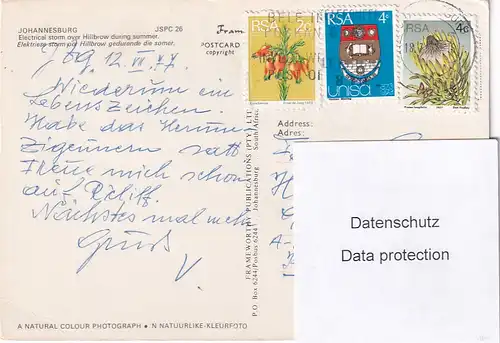 JOHANNESBURG JSPC 26
Electrical storm over Hillbrow during summer.
Elektriese storm oor Hillbrow gedurende die somer.
POSTCARD
copyright
RSA 2c
RSA 4c
unisa
RSA 4c
Address:
Adres:
Wiederum ein
Lebenszeichen
Habe das Herum
Zigeunern satt
Freue mich schon
auf
Nächstes mal mehr
Gruß
V.
FRAMEWORTH PUBLICATIONS (PTY) LTD
P.O. Box 6244/Posbus 6244 / Johannesburg South Africa
Datenschutz
Data protection
A NATURAL COLOUR PHOTOGRAPH • 'N NATUURLIKE-KLEURFOTO